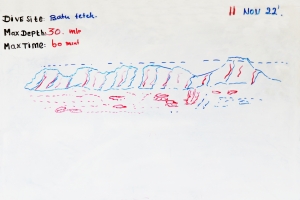 DIVE SITE: Batu tetek. 11 NOV 22'.
MAX DEPTH: 30. mtr
MAX TIME: 60 mint